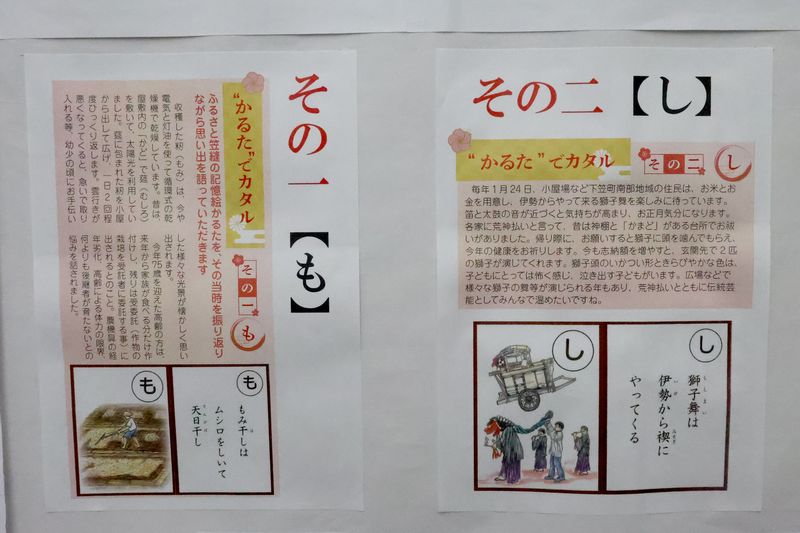 その一【も】
“かるた”でカタル
その一 も
ふるさと笠縫の記憶絵かるたを、その当時を振り返り
ながら思い出を語っていただきます
収穫した籾(もみ)は、今や
電気と灯油を使って循環式の乾
燥機で乾燥しています。昔は、
屋敷内の「かど」で莚(むしろ)
を敷いて、太陽光を利用してい
ました。莚に包まれた籾を小屋
から出して広げ、一日2回程
度ひっくり返します。雲行きが
悪くなってくると、急いで取り
入れる等、幼少の頃にお手伝い
した様々な光景が懐かしく思い
出されます。
今年75歳を迎えた高齢の方は、
来年から家族が食べる分だけ作
付けし、残りは受委託(作物の
栽培を受託者に委託する事)に
出されるとのこと。農機具の経
年劣化、高齢による体力の限界、
何よりも後継者が育たないとの
悩みを話されました。
も
も
もみ干しは
ムシロをしいて
天日干し
その二【し】
“かるた”でカタル
その二 し
毎年1月24日、小屋場など下笠町南部地域の住民は、お米とお
金を用意し、伊勢からやって来る獅子舞を楽しみに待っています。
笛と太鼓の音が近づくと気持ちが高まり、お正月気分になります。
各家に荒神払いと言って、昔は神棚と「かまど」がある台所でお祓
いがありました。帰り際に、お願いすると獅子に頭を噛んでもらえ、
今年の健康をお祈りします。今も志納額を増やすと、玄関先で2匹
の獅子が演じてくれます。獅子頭のいかつい形ときらびやかな色は、
子どもにとっては怖く感じ、泣き出す子どもがいます。広場などで
様々な獅子の舞等が演じられる年もあり、荒神払いとともに伝統芸
能としてみんなで温めたいですね。
し
し
獅子舞は
伊勢から禊に
やってくる